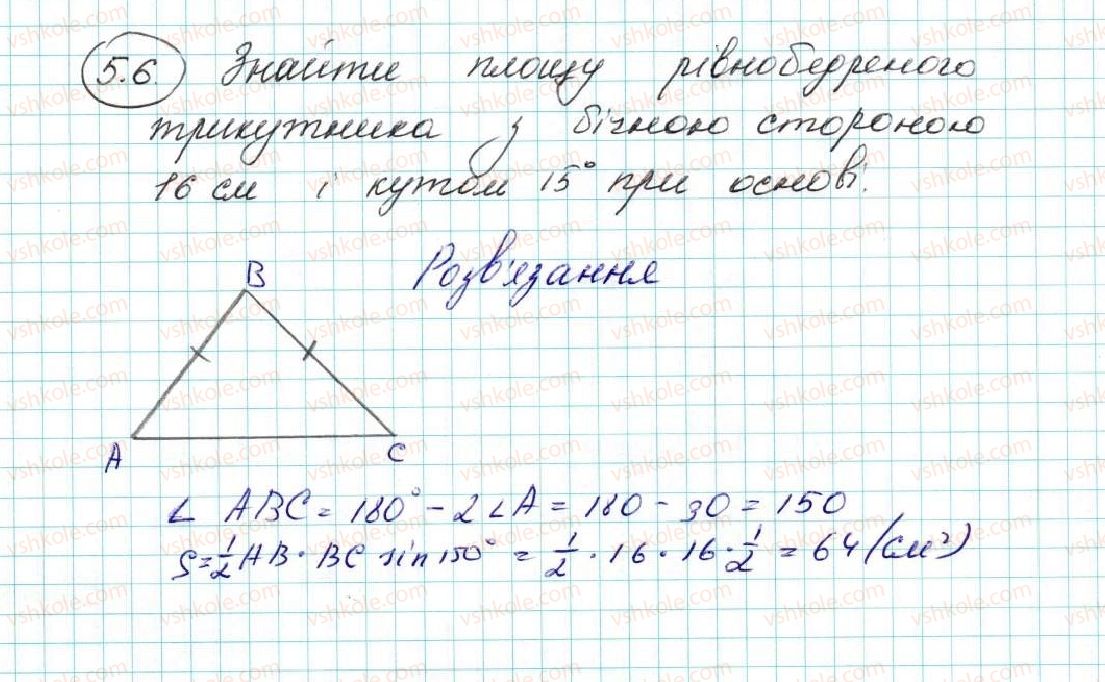 5.6. Знайти площу рівнобедреного
трикутника з бічною стороною
16 см і кутом 15° при основі.
Розв'язання
B
A
C
∠ ABC = 180° - 2∠A = 180 - 30 = 150
S = 1/2 AB · BC sin 150° = 1/2 · 16 · 16 · 1/2 = 64 (см²)
vshkole.com